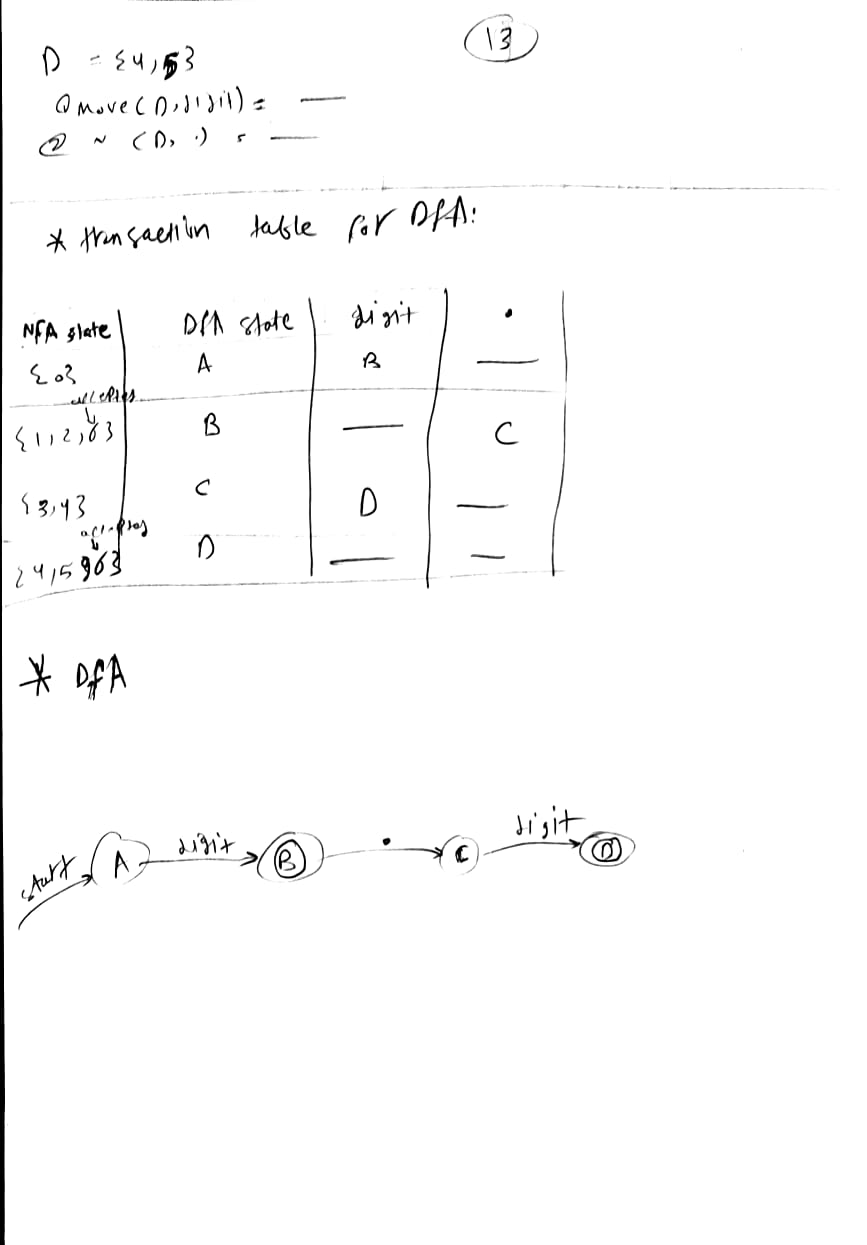 13
D = {4,5}
① move(D,digit) = —
② ~ (D, .) = —
* transaction table for DFA:
NFA state | DFA state | digit | .
{0} A B —
accepts
{1,2,6} B — C
{3,4} C D —
accepts
{4,5 6} D — —
* DFA
start A digit B . C digit D